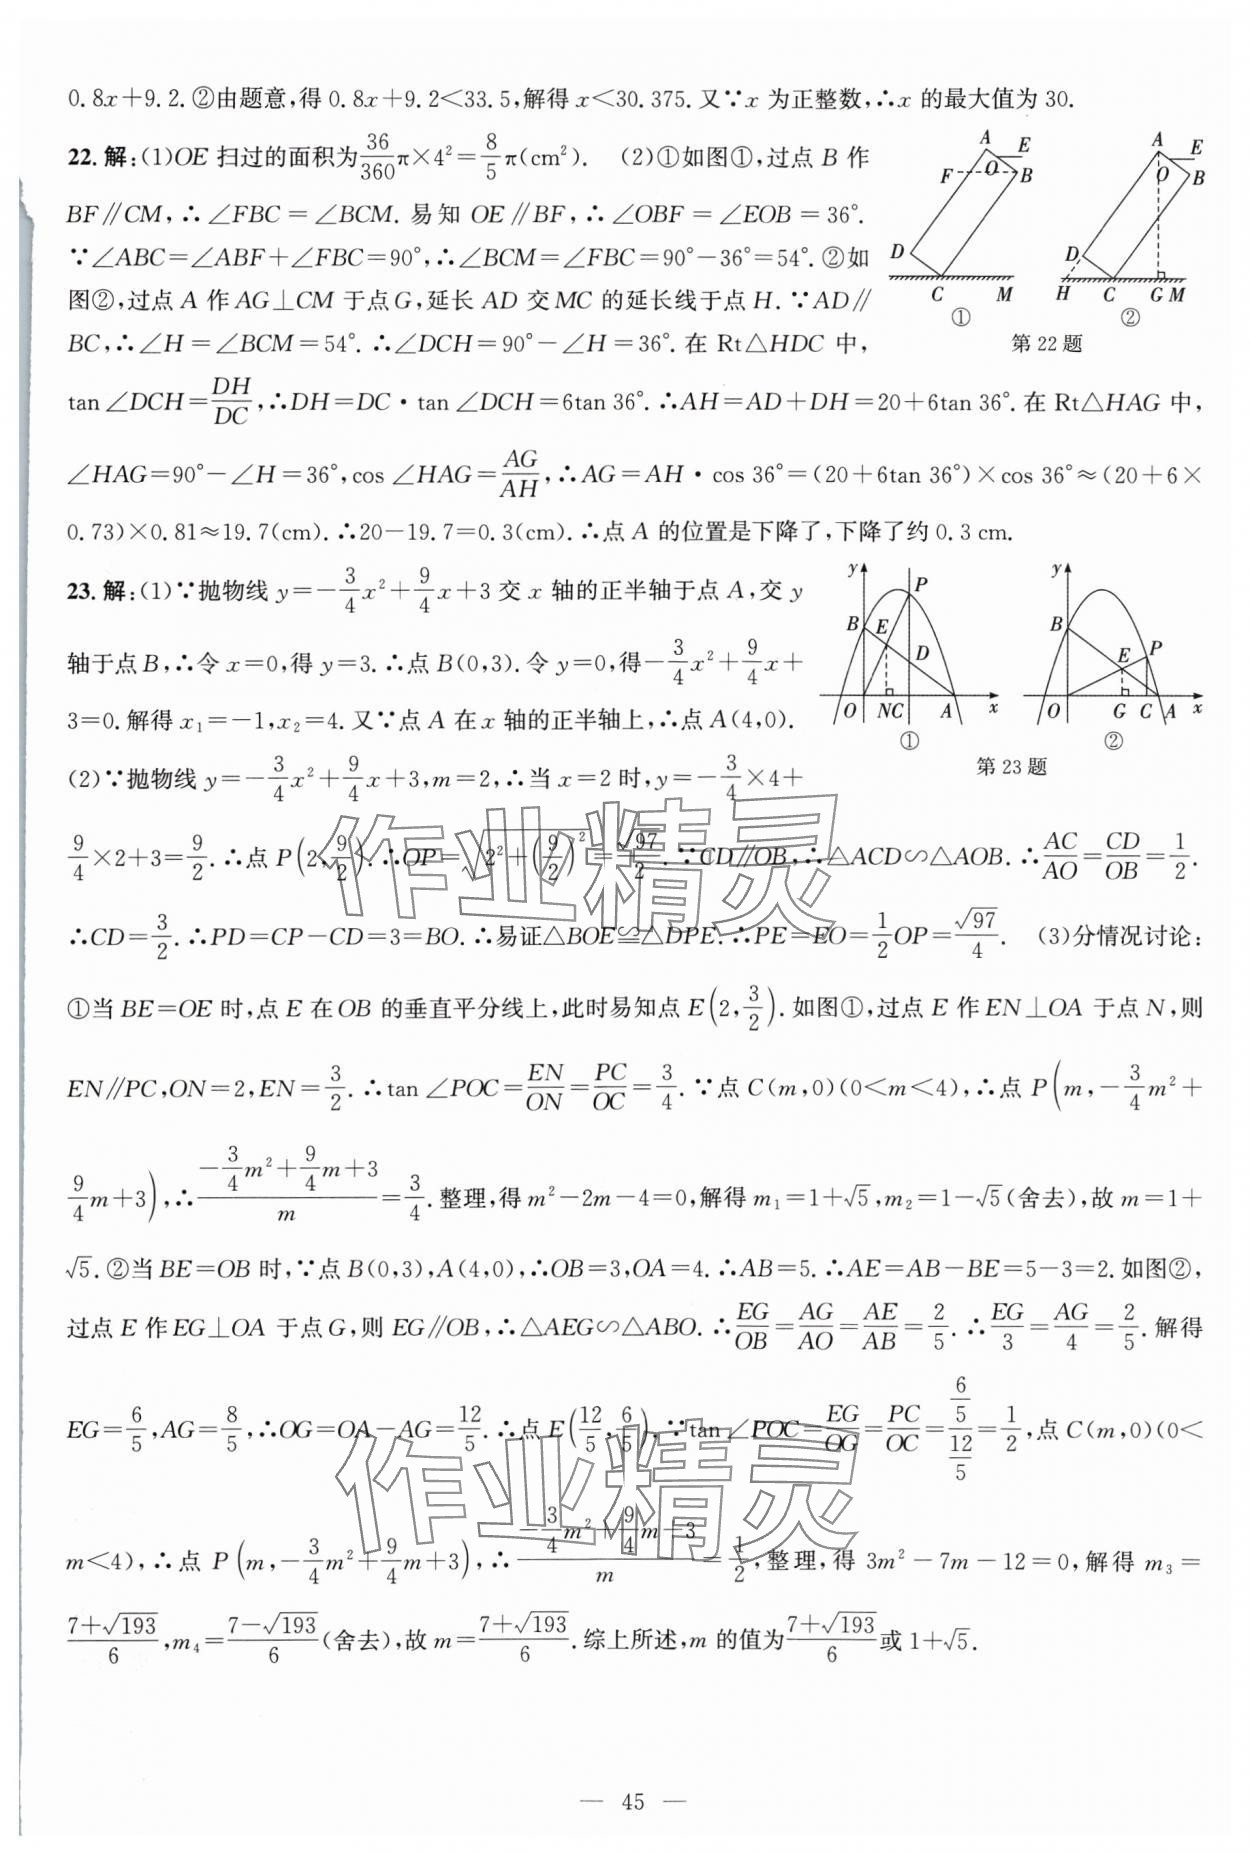 0.8x+9.2.②由题意,得0.8x+9.2<33.5,解得x<30.375.又∵x为正整数,∴x的最大值为30.
22.解:(1)OE扫过的面积为36/360π×4²=8/5π(cm²). (2)①如图①,过点B作
BF∥CM,∴∠FBC=∠BCM.易知OE∥BF,∴∠OBF=∠EOB=36°.
∵∠ABC=∠ABF+∠FBC=90°,∴∠BCM=∠FBC=90°-36°=54°.②如
图②,过点A作AG⊥CM于点G,延长AD交MC的延长线于点H.∵AD∥
BC,∴∠H=∠BCM=54°.∴∠DCH=90°-∠H=36°.在Rt△HDC中,
A E F O B D C M ①
A E O B D H C G M ②
第22题
tan∠DCH=DH/DC,∴DH=DC·tan∠DCH=6tan36°.∴AH=AD+DH=20+6tan36°.在Rt△HAG中,
∠HAG=90°-∠H=36°,cos∠HAG=AG/AH,∴AG=AH·cos36°=(20+6tan36°)×cos36°≈(20+6×
0.73)×0.81≈19.7(cm).∴20-19.7=0.3(cm).∴点A的位置是下降了,下降了约0.3cm.
23.解:(1)∵抛物线y=-3/4x²+9/4x+3交x轴的正半轴于点A,交y
轴于点B,∴令x=0,得y=3.∴点B(0,3).令y=0,得-3/4x²+9/4x+
3=0.解得x₁=-1,x₂=4.又∵点A在x轴的正半轴上,∴点A(4,0).
y P B E D O N C A x ①
y B E P O G C A x ②
第23题
(2)∵抛物线y=-3/4x²+9/4x+3,m=2,∴当x=2时,y=-3/4×4+
9/4×2+3=9/2.∴点P(2,9/2).∴OP=√(2²+(9/2)²)=√97/2.∵CD∥OB,∴△ACD∽△AOB.∴AC/AO=CD/OB=1/2.
∴CD=3/2.∴PD=CP-CD=3=BO.∴易证△BOE≌△DPE.∴PE=EO=1/2OP=√97/4. (3)分情况讨论:
①当BE=OE时,点E在OB的垂直平分线上,此时易知点E(2,3/2).如图①,过点E作EN⊥OA于点N,则
EN∥PC,ON=2,EN=3/2.∴tan∠POC=EN/ON=PC/OC=3/4.∵点C(m,0)(0<m<4),∴点P(m,-3/4m²+
9/4m+3),∴(-3/4m²+9/4m+3)/m=3/4.整理,得m²-2m-4=0,解得m₁=1+√5,m₂=1-√5(舍去),故m=1+
√5.②当BE=OB时,∵点B(0,3),A(4,0),∴OB=3,OA=4.∴AB=5.∴AE=AB-BE=5-3=2.如图②,
过点E作EG⊥OA于点G,则EG∥OB,∴△AEG∽△ABO.∴EG/OB=AG/AO=AE/AB=2/5.∴EG/3=AG/4=2/5.解得
EG=6/5,AG=8/5,∴OG=OA-AG=12/5.∴点E(12/5,6/5).∵tan∠POC=EG/OG=PC/OC=(6/5)/(12/5)=1/2,点C(m,0)(0<
m<4),∴点P(m,-3/4m²+9/4m+3),∴(-3/4m²+9/4m+3)/m=1/2,整理,得3m²-7m-12=0,解得m₃=
(7+√193)/6,m₄=(7-√193)/6(舍去),故m=(7+√193)/6.综上所述,m的值为(7+√193)/6或1+√5.
作业精灵
作业精灵
— 45 —